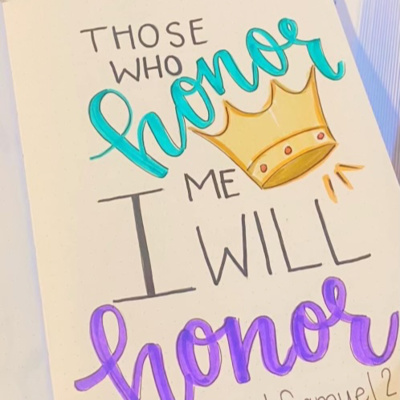 THOSE
WHO
honor
ME
I WILL
honor
Samuel 2